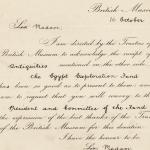 British Museum
16 October
Sir Madam,
I am directed by the Trustees of
British Museum to acknowledge the receipt of
Antiquities mentioned on the other side
the Egypt Exploration Fund
has been so good as to present to them: and
upon to request that you will convey to the
President and Committee of the Fund
the expression of the best thanks of the Trustees
of the British Museum for this donation.
I have the honour to be
Madam